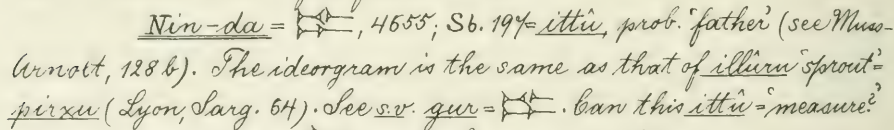 Nin-da = , 4655; Sb. 197 = ittû, prob. 'father' (see Muss-
Arnott, 128 b). The ideorgram is the same as that of illûru 'sprout' =
pirxu (Lyon, Sarg. 64). See s.v. gur = . Can this ittû = 'measure?'